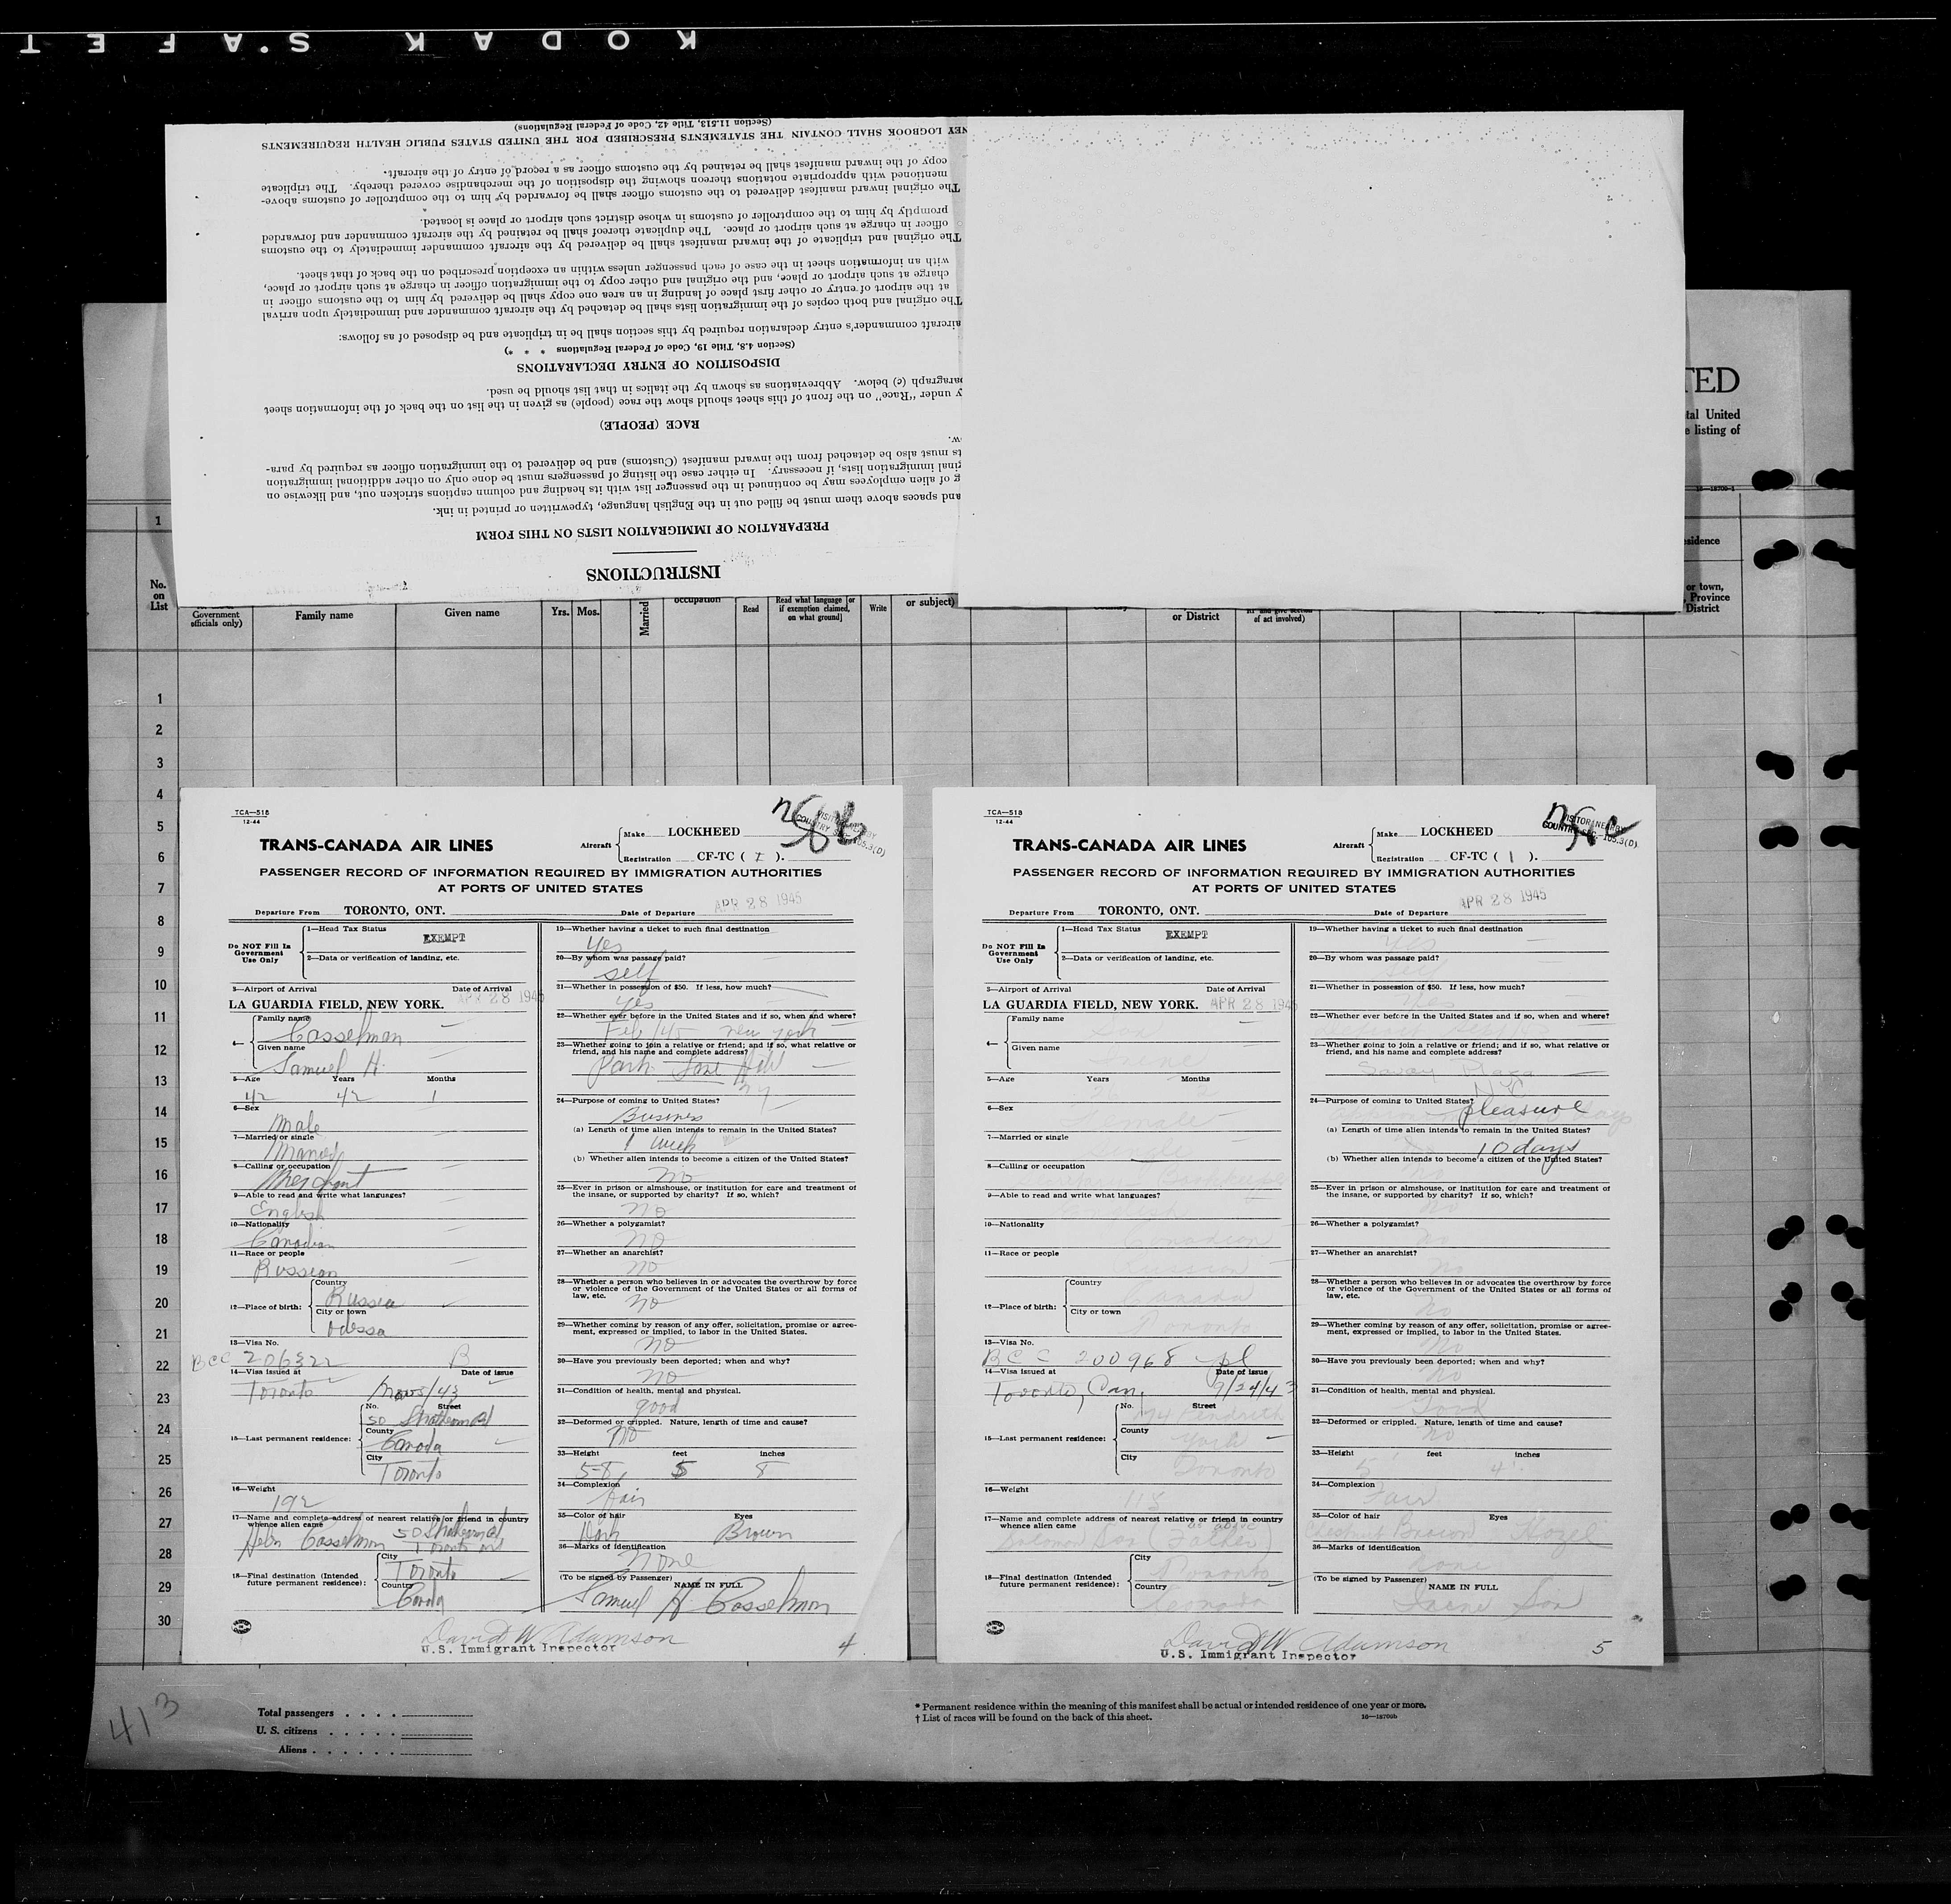 KODAK SAFET
(Section 11.513, Title 42, Code of Federal Regulations)
NEY LOGBOOK SHALL CONTAIN THE STATEMENTS PRESCRIBED FOR THE UNITED STATES PUBLIC HEALTH REQUIREMENTS
copy of the inward manifest shall be retained by the customs officer as a record of entry of the aircraft.
mentioned with appropriate notations thereon showing the disposition of the merchandise covered thereby. The triplicate
The original inward manifest delivered to the customs officer shall be forwarded by him to the comptroller of customs above-
promptly by him to the comptroller of customs in whose district such airport or place is located.
officer in charge at such airport or place. The duplicate thereof shall be retained by the aircraft commander and forwarded
The original and triplicate of the inward manifest shall be delivered by the aircraft commander immediately to the customs
with an information sheet in the case of each passenger unless within an exception prescribed on the back of that sheet.
charge at such airport or place, and the original and other copy to the immigration officer in charge at such airport or place,
at the airport of entry or other first place of landing in an area one copy shall be delivered by him to the customs officer in
The original and both copies of the immigration lists shall be detached by the aircraft commander and immediately upon arrival
aircraft commander's entry declaration required by this section shall be in triplicate and be disposed of as follows:
(Section 4.8, Title 19, Code of Federal Regulations * * *)
DISPOSITION OF ENTRY DECLARATIONS
paragraph (c) below. Abbreviations as shown by the italics in that list should be used.
y under "Race" on the front of this sheet should show the race (people) as given in the list on the back of the information sheet
RACE (PEOPLE)
ow.
ts must also be detached from the inward manifest (Customs) and be delivered to the immigration officer as required by para-
ginal immigration lists, if necessary. In either case the listing of passengers must be done only on other additional immigration
g of alien employees may be continued in the passenger list with its heading and column captions stricken out, and likewise on
and spaces above them must be filled out in the English language, typewritten or printed in ink.
PREPARATION OF IMMIGRATION LISTS ON THIS FORM
INSTRUCTIONS
TED
tal United
e listing of
1
esidence
No. on List
Government officials only)
Family name
Given name
Yrs. Mos.
Married
occupation
Read
Read what language [or if exemption claimed, on what ground]
Write
or subject)
or District
of act involved)
or town, Province District
1
2
3
4
5
6
7
8
9
10
11
12
13
14
15
16
17
18
19
20
21
22
23
24
25
26
27
28
29
30
TCA—518
12-44
TRANS-CANADA AIR LINES
Aircraft
Make LOCKHEED
Registration CF-TC ( I ).
VISITOR NEARBY
COUNTRY SEC. 105.3(D)
PASSENGER RECORD OF INFORMATION REQUIRED BY IMMIGRATION AUTHORITIES
AT PORTS OF UNITED STATES
Departure From TORONTO, ONT.
Date of Departure APR 28 1945
Do NOT Fill In Government Use Only
1—Head Tax Status EXEMPT
2—Data or verification of landing, etc.
3—Airport of Arrival Date of Arrival
LA GUARDIA FIELD, NEW YORK. APR 28 1945
4— Family name Casselman
Given name Samuel H.
5—Age Years Months
42 42 1
6—Sex
Male
7—Married or single
Married
8—Calling or occupation
Merchant
9—Able to read and write what languages?
English
10—Nationality
Canadian
11—Race or people
Russian
12—Place of birth: Country Russia
City or town Odessa
13—Visa No.
BCC 206322 B
14—Visa issued at Date of issue
Toronto
15—Last permanent residence: No. Street
50 Strathearn Bl
County Canada
City Toronto
16—Weight
192
17—Name and complete address of nearest relative or friend in country whence alien came
Casselman 50 Strathearn Bl
Toronto Ont
18—Final destination (Intended future permanent residence): City Toronto
Country Canada
19—Whether having a ticket to such final destination
Yes
20—By whom was passage paid?
self
21—Whether in possession of $50. If less, how much?
Yes
22—Whether ever before in the United States and if so, when and where?
Feb/45 New York
23—Whether going to join a relative or friend; and if so, what relative or friend, and his name and complete address?
Park Lane Hotel
NY
24—Purpose of coming to United States?
Business
(a) Length of time alien intends to remain in the United States?
1 week
(b) Whether alien intends to become a citizen of the United States?
No
25—Ever in prison or almshouse, or institution for care and treatment of the insane, or supported by charity? If so, which?
No
26—Whether a polygamist?
No
27—Whether an anarchist?
No
28—Whether a person who believes in or advocates the overthrow by force or violence of the Government of the United States or all forms of law, etc.
No
29—Whether coming by reason of any offer, solicitation, promise or agreement, expressed or implied, to labor in the United States.
No
30—Have you previously been deported; when and why?
No
31—Condition of health, mental and physical.
good
32—Deformed or crippled. Nature, length of time and cause?
No
33—Height feet inches
5-8 5 8
34—Complexion
fair
35—Color of hair Eyes
Dark Brown
36—Marks of identification
None
(To be signed by Passenger) NAME IN FULL
Samuel H Casselman
David W Adamson
U.S. Immigrant Inspector
4
TCA—518
12-44
TRANS-CANADA AIR LINES
Aircraft
Make LOCKHEED
Registration CF-TC ( 1 ).
VISITOR NEARBY
COUNTRY SEC. 105.3(D)
PASSENGER RECORD OF INFORMATION REQUIRED BY IMMIGRATION AUTHORITIES
AT PORTS OF UNITED STATES
Departure From TORONTO, ONT.
Date of Departure APR 28 1945
Do NOT Fill In Government Use Only
1—Head Tax Status EXEMPT
2—Data or verification of landing, etc.
3—Airport of Arrival Date of Arrival
LA GUARDIA FIELD, NEW YORK. APR 28 1945
4— Family name
Given name
5—Age Years Months
6—Sex
7—Married or single
8—Calling or occupation
9—Able to read and write what languages?
10—Nationality
Canadian
11—Race or people
Russian
12—Place of birth: Country Canada
City or town Toronto
13—Visa No.
BCC 200968
14—Visa issued at Date of issue
Toronto, Can. 9/24/43
15—Last permanent residence: No. Street
County York
City Toronto
16—Weight
115
17—Name and complete address of nearest relative or friend in country whence alien came
as above
(Father)
18—Final destination (Intended future permanent residence): City Toronto
Country Canada
19—Whether having a ticket to such final destination
Yes
20—By whom was passage paid?
self
21—Whether in possession of $50. If less, how much?
Yes
22—Whether ever before in the United States and if so, when and where?
23—Whether going to join a relative or friend; and if so, what relative or friend, and his name and complete address?
Savoy Plaza
NYC
24—Purpose of coming to United States?
pleasure
(a) Length of time alien intends to remain in the United States?
10 days
(b) Whether alien intends to become a citizen of the United States?
25—Ever in prison or almshouse, or institution for care and treatment of the insane, or supported by charity? If so, which?
No
26—Whether a polygamist?
No
27—Whether an anarchist?
No
28—Whether a person who believes in or advocates the overthrow by force or violence of the Government of the United States or all forms of law, etc.
No
29—Whether coming by reason of any offer, solicitation, promise or agreement, expressed or implied, to labor in the United States.
No
30—Have you previously been deported; when and why?
No
31—Condition of health, mental and physical.
Good
32—Deformed or crippled. Nature, length of time and cause?
No
33—Height feet inches
5' 4"
34—Complexion
Fair
35—Color of hair Eyes
Chestnut Brown Hazel
36—Marks of identification
None
(To be signed by Passenger) NAME IN FULL
Irene
David W Adamson
U.S. Immigrant Inspector
5
413
Total passengers . . . .
U. S. citizens . . . . .
Aliens . . . . . .
* Permanent residence within the meaning of this manifest shall be actual or intended residence of one year or more.
† List of races will be found on the back of this sheet.